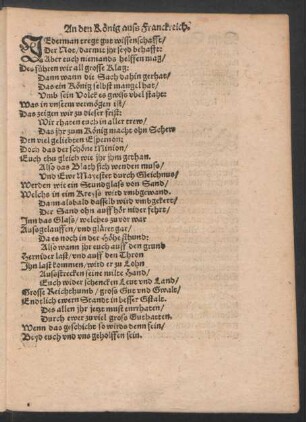 An den König auß Franckreich.
JEderman tregt gut wissenschafft/
Der Not/darmit jhr seyd behafft:
Aber euch niemands helffen mag/
Des führen wir all grosse Klag:
Dann wann die Sach dahin gerhat/
Das ein König selbst mangel hat/
Vmb sein Volck es gwiß vbel staht:
Was in vnserm vermögen ist/
Das zeigen wir zu dieser frist:
Wir rhaten euch in aller trew/
Das jhr zum König macht ohn Schew
Den viel geliebten Espernon:
Doch das der schöne Minion/
Euch thu gleich wie jhr jhm gethan.
Also das Blath sich wenden muß/
Vnd Ewr Mayester durch Gleichnus/
Werden wie ein Stundglaß von Sand/
Welchs in ein Kreyß wird vmbgewand.
Dann alsbald dasselb wird vmbgekert/
Der Sand ohn auffhör nider fehrt/
Inn das Glaß/ welches zu vor war
Außgelauffen/vnd glärer gar/
Da es noch in der Höhe sthund:
Also wann jhr euch auff den grund
Hernider last/ vnd auff den Thron
Jhn last kommen/ wird er zu Lohn
Außstrecken seine milte Hand/
Euch wider schencken Leut vnd Land/
Grosse Reichthumb/ groß Gut vnd Gwalt/
Endtlich ewern Standt in besser Gstalt.
Des allen jhr jetzt must entrhaten/
Durch ewer zuviel groß Guthaten.
Wenn das geschicht so wirds denn sein/
Beyd euch vnd vns geholffen fein.